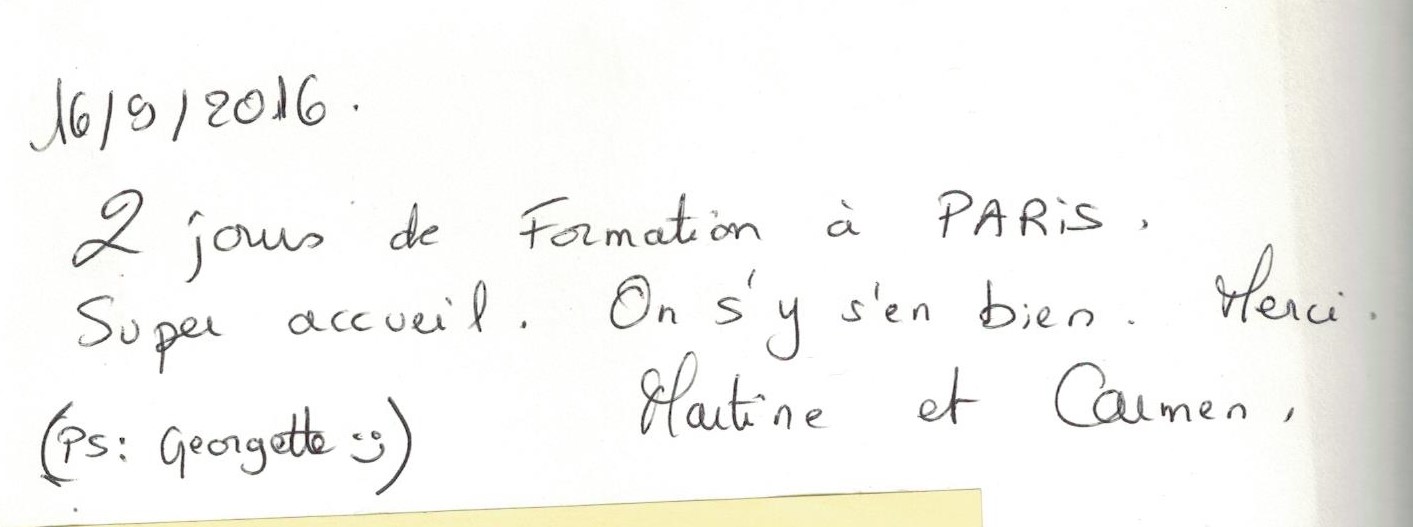 16/9/2016.
2 jours de Formation à PARiS.
Super accueil. On s'y s'en bien. Merci.
Martine et Carmen,
(PS: Georgette :))